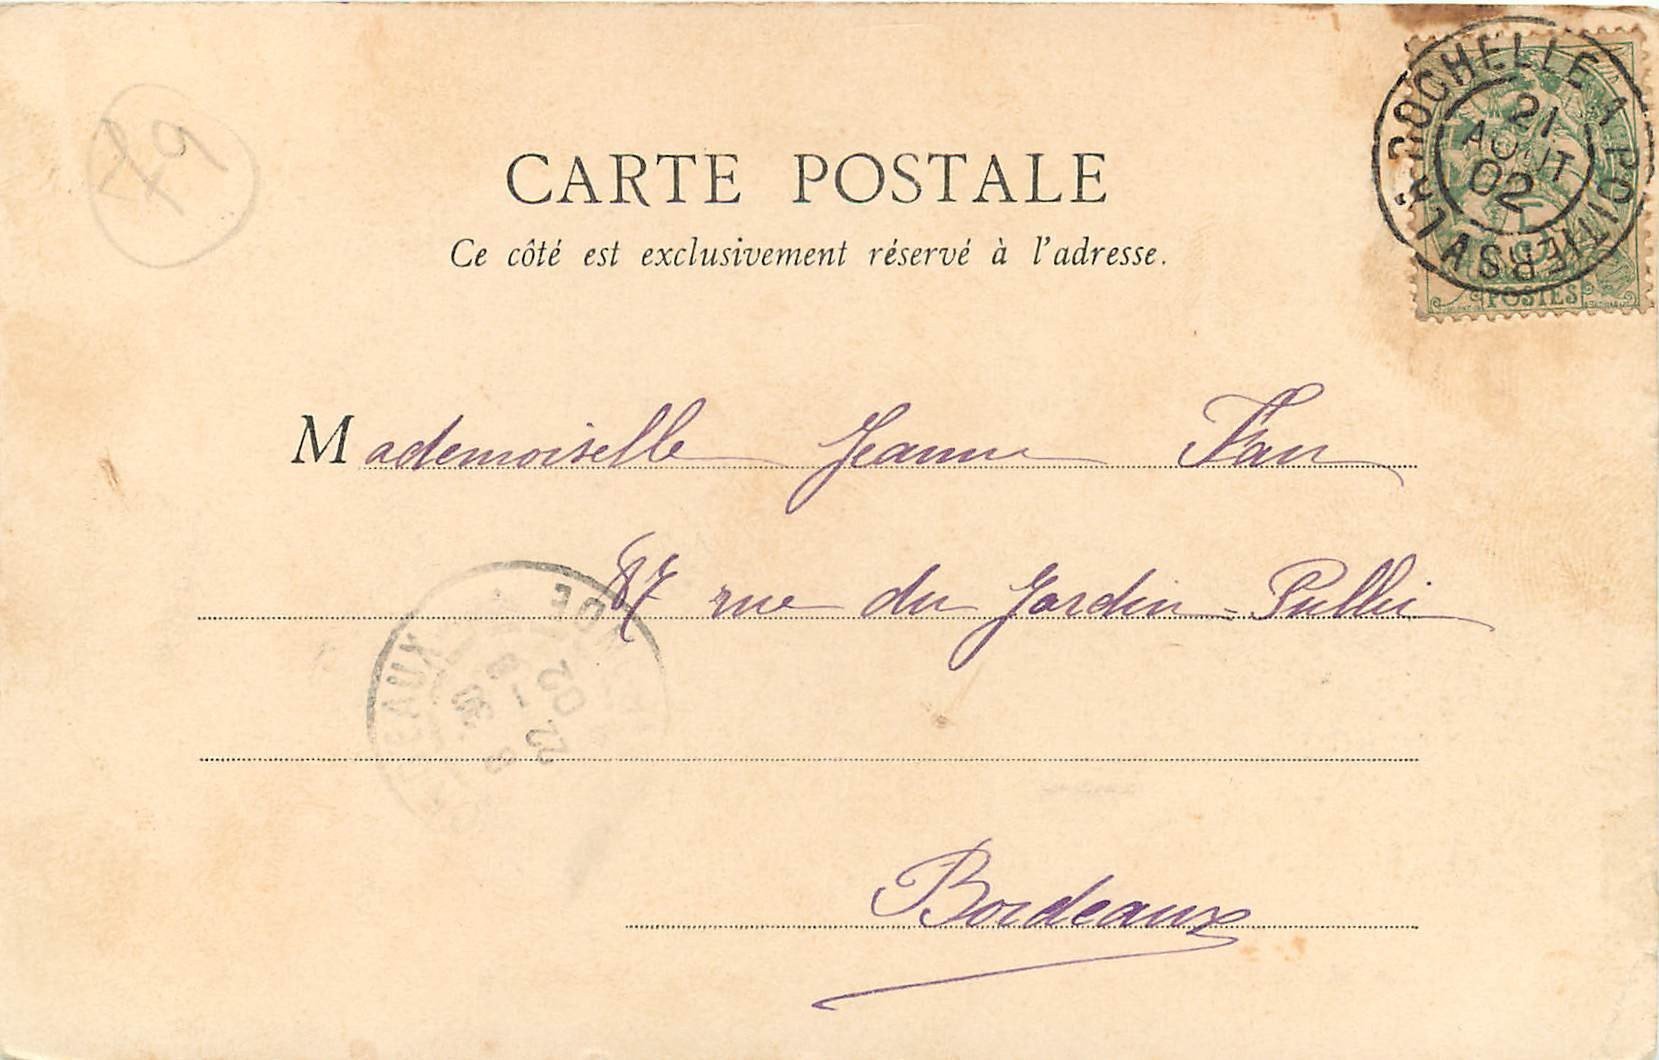 79
CARTE POSTALE
Ce côté est exclusivement réservé à l'adresse.
LA ROCHELLE A POITIERS
21
AOUT
02
POSTES
Mademoiselle Jeanne Fau
87 rue du Jardin-Public
BORDEAUX GIRONDE
02
Bordeaux